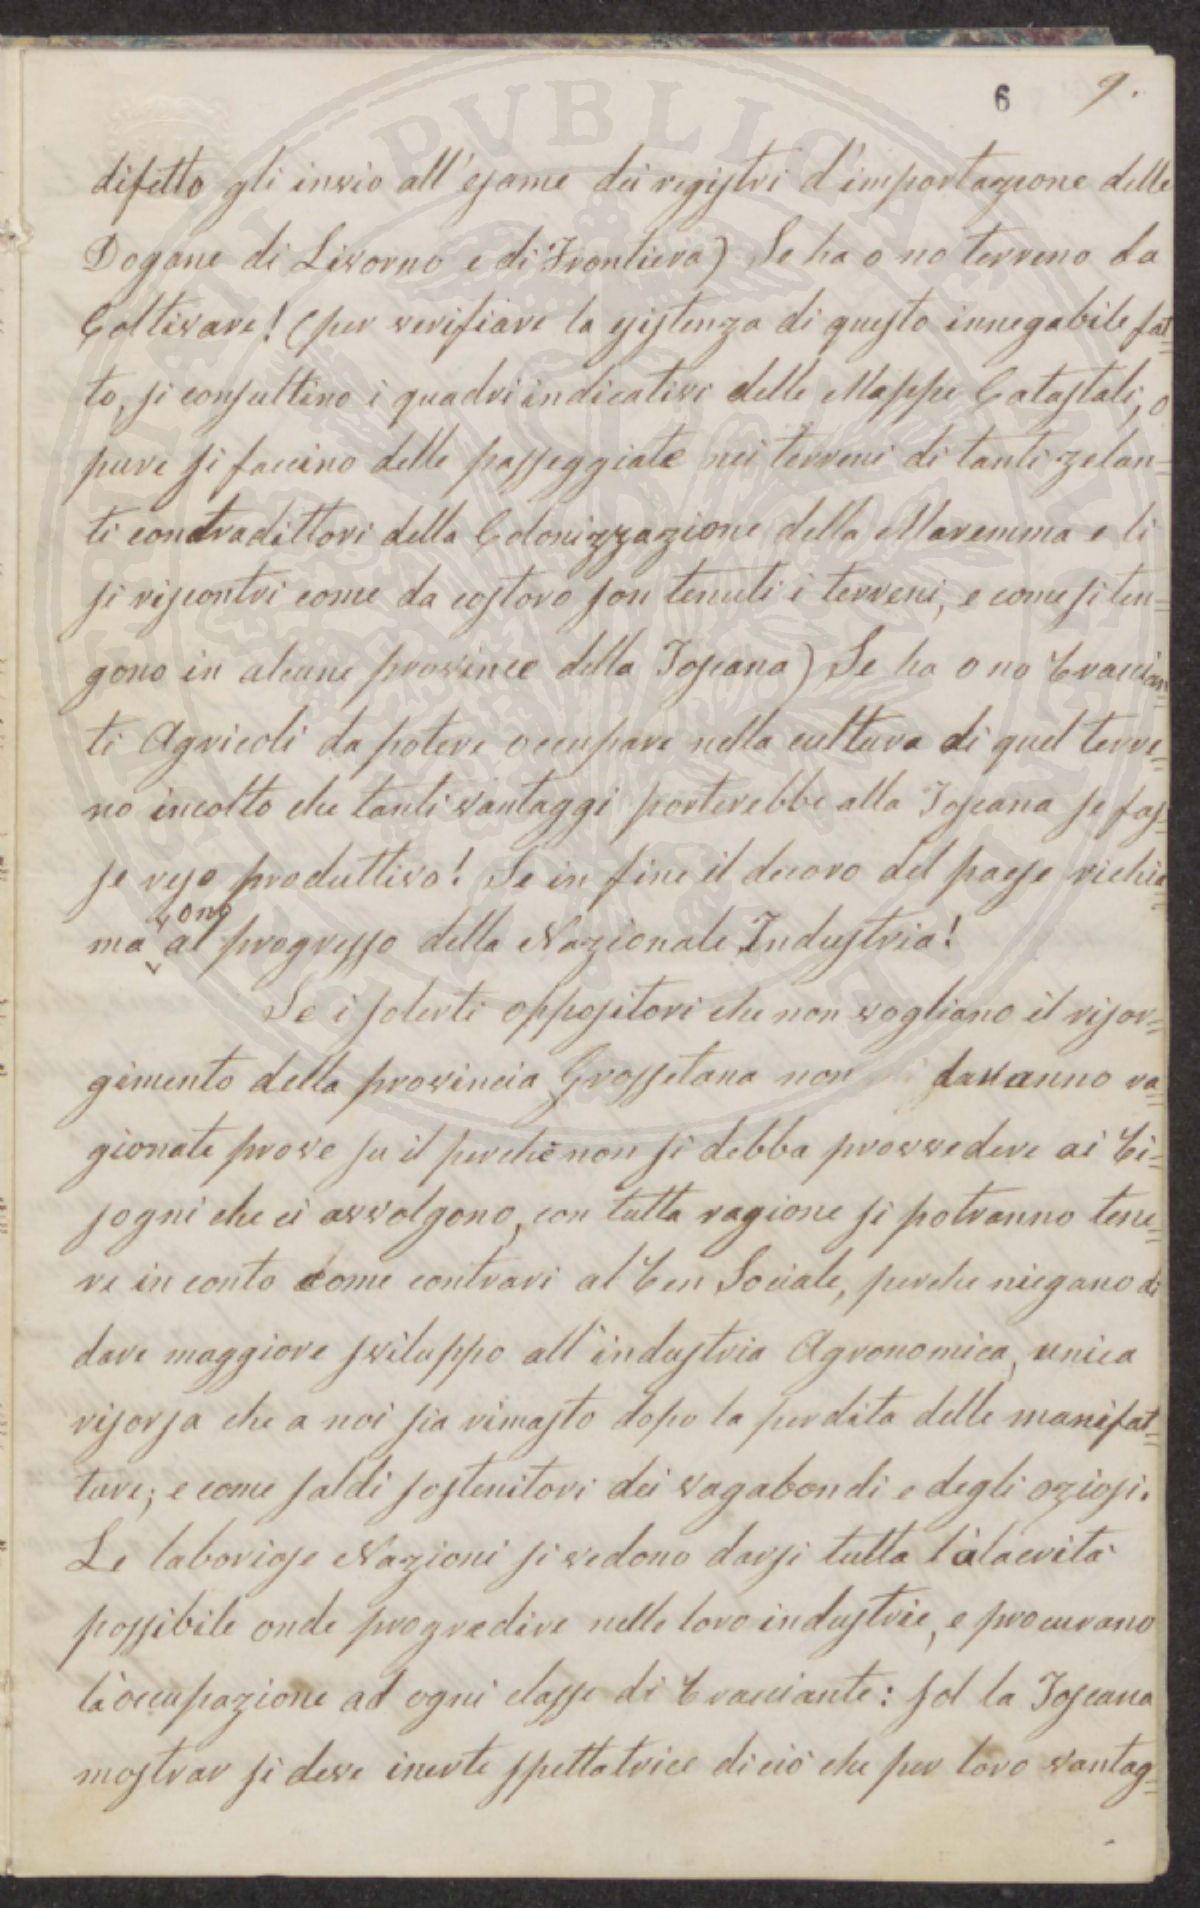 6 9.
difetto gli invio all' esame dei registri d'importazione delle
Dogane di Livorno e di Frontiera) Se ha o no terreno da
Coltivare! (per verifiare la esistenza di questo innegabile fat=
to, si consultino i quadri indicativi delle Mappe Catastali, o
pure si faccino delle passeggiate nei terreni di tanti zelan=
ti contradittori della Colonizzazione della Maremma e li
si riscontri come da costoro son tenuti i terreni, e come si ten=
gono in alcune province della Toscana) Se ha o no braccian=
ti Agricoli da potere occupare nella cultura di quel terre=
no incolto che tanti vantaggi porterebbe alla Toscana se fos=
se reso produttivo! Se in fine il decoro del paese richia=
mavono al progresso della Nazionale Industria!
Se i solerti oppositori che non vogliano il risor=
gimento della provincia Grossetana non daranno ra=
gionate prove su il perchè non si debba provvedere ai bi=
sogni che ci avvolgono, con tutta ragione si potranno tene=
re in conto come contrari al ben Sociale, perche niegano di
dare maggiore sviluppo all'industria Agronomica, unica
risorsa che a noi sia rimasto dopo la perdita delle manifat=
ture; e come saldi sostenitori dei vagabondi e degli oziosi.
Le laboriose Nazioni si vedono darsi tutta l'alacrità
possibile onde progredire nelle loro industrie, e procurano
l'occupazione ad ogni classe di bracciante: sol la Toscana
mostrar si deve inerte spettatrice di ciò che per loro vantag=
PUBLICA